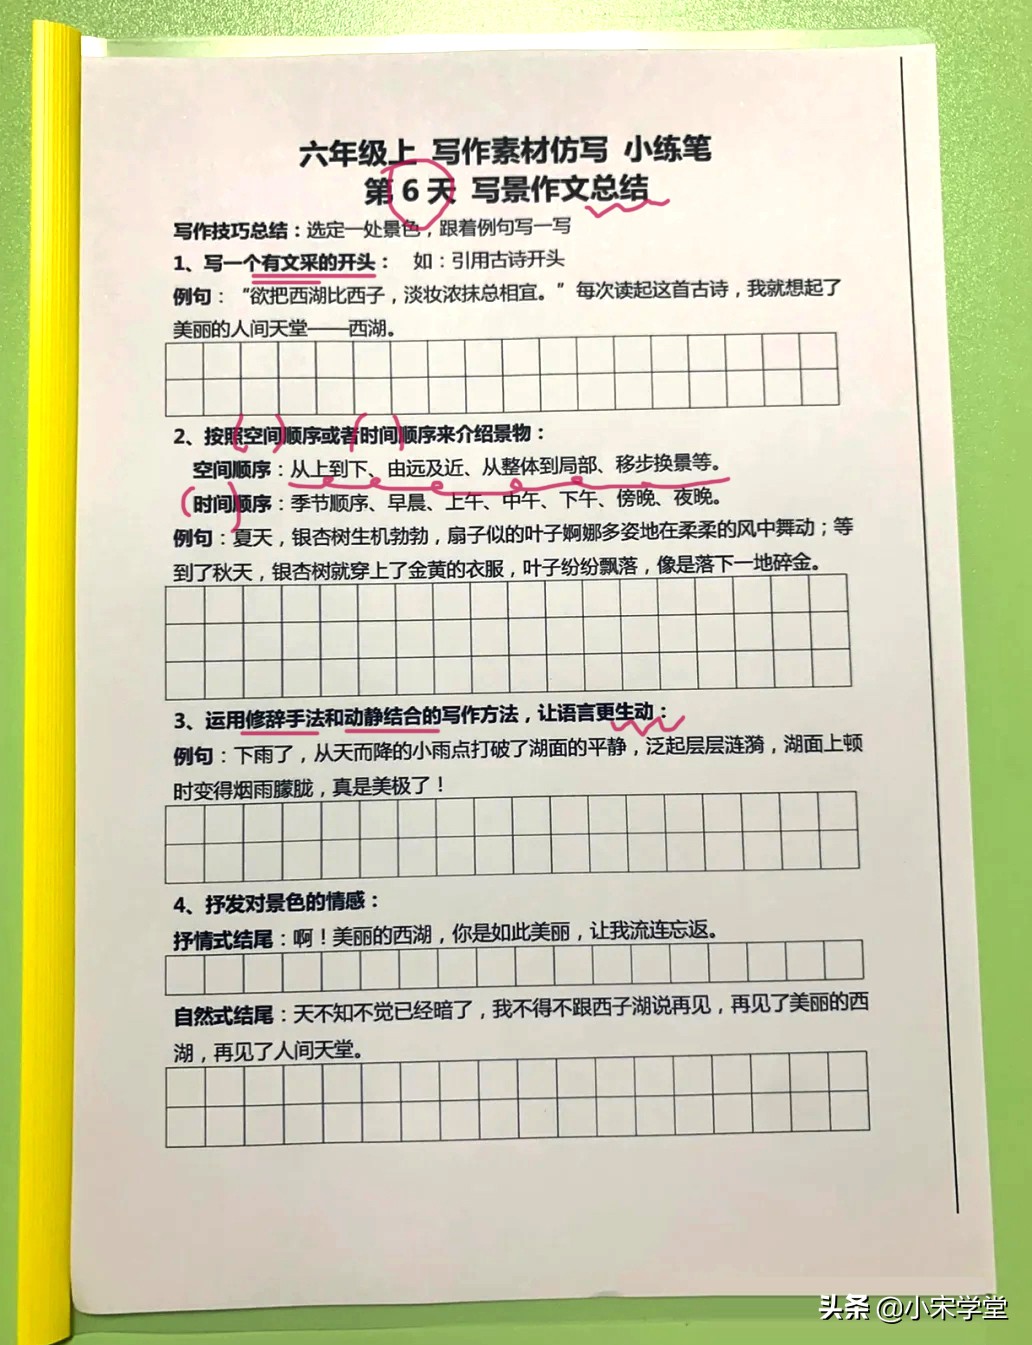 六年级上 写作素材仿写 小练笔
第6天 写景作文总结
写作技巧总结：选定一处景色，跟着例句写一写
1、写一个有文采的开头： 如：引用古诗开头
例句：“欲把西湖比西子，淡妆浓抹总相宜。”每次读起这首古诗，我就想起了
美丽的人间天堂——西湖。
2、按照空间顺序或者时间顺序来介绍景物：
空间顺序：从上到下、由远及近、从整体到局部、移步换景等。
时间顺序：季节顺序、早晨、上午、中午、下午、傍晚、夜晚。
例句：夏天，银杏树生机勃勃，扇子似的叶子婀娜多姿地在柔柔的风中舞动；等
到了秋天，银杏树就穿上了金黄的衣服，叶子纷纷飘落，像是落下一地碎金。
3、运用修辞手法和动静结合的写作方法，让语言更生动：
例句：下雨了，从天而降的小雨点打破了湖面的平静，泛起层层涟漪，湖面上顿
时变得烟雨朦胧，真是美极了！
4、抒发对景色的情感：
抒情式结尾：啊！美丽的西湖，你是如此美丽，让我流连忘返。
自然式结尾：天不知不觉已经暗了，我不得不跟西子湖说再见，再见了美丽的西
湖，再见了人间天堂。
头条 @小宋学堂